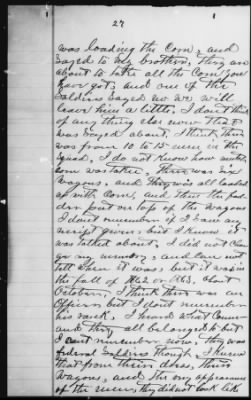 27
was loading the Corn, and
sayed to my brother, they are
about to take all the Corn you
have got, and one of the
Soldiers sayed no we will
leave him a little, I dont think
of any thing else now that
was sayed about. I think there
was from 10 to 15 men in the
squad, I do not know how much
corn was taken. There was six
Wagons, and they was all loaded
up with Corn, and then the fod-
der put on top of the Wagons
I dont remember if I saw any
receipt given, but I know it
was talked about. I did not
my memory, and can not
tell when it was, but it was in
the fall of 1862 or 1863, about
October, I think there was an
Officer but I dont remember
his rank, I heard what Comm-
and they all belonged to but
I cant remember now, they was
federal Soldiers though, I knew
that from their dress, their
Wagons, and the appearance
of the men, they did not look like